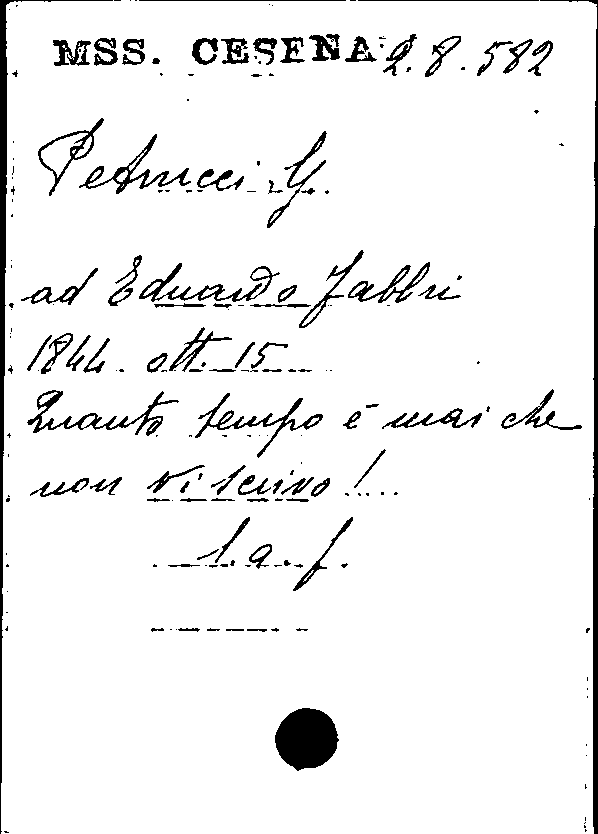 MSS. CESENA 2.8.582
Petrucci G.
ad Eduardo Fabbri
1844. ott. 15
Quanto tempo è mai che
non vi scrivo!...
l. a. f.